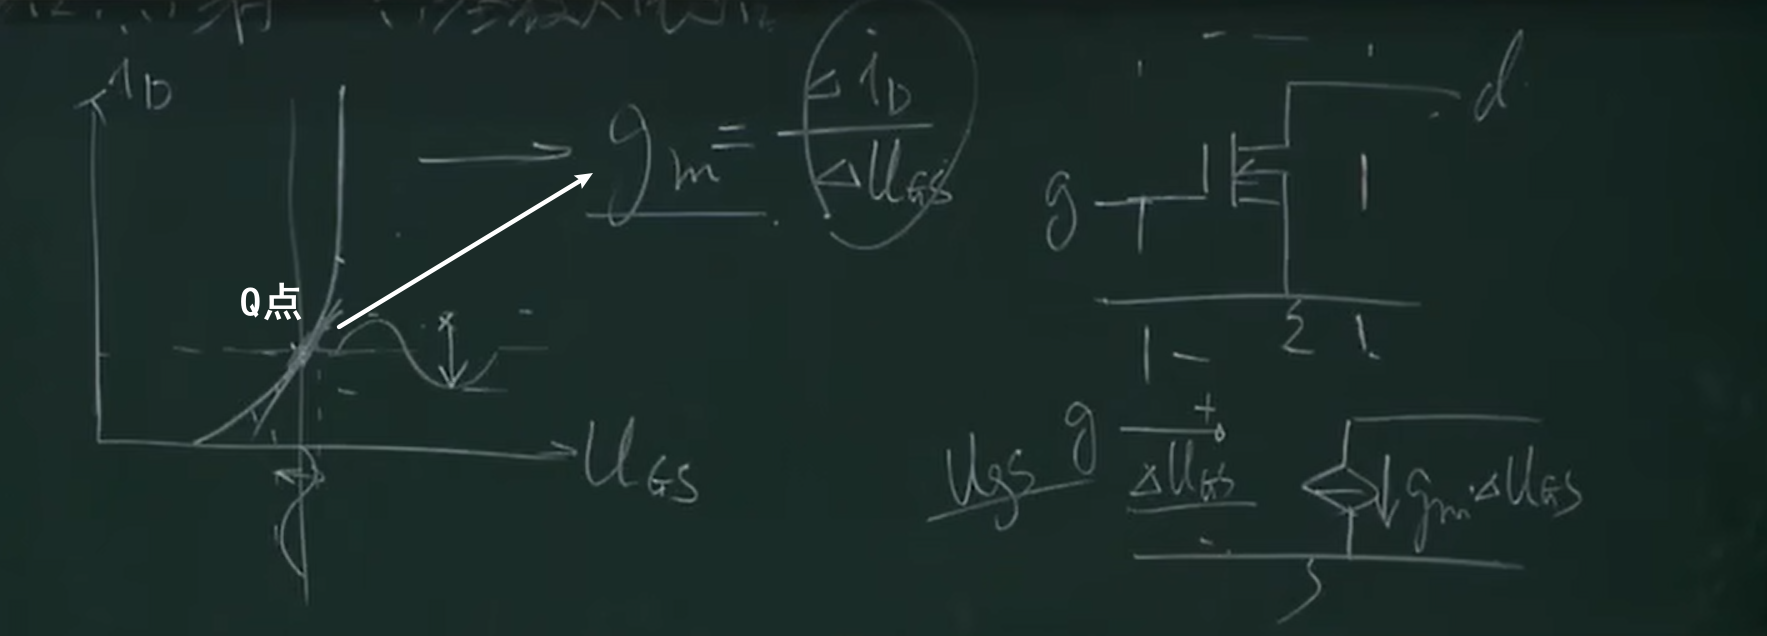 i_D
Q点
U_GS
g_m = Δi_D / ΔU_GS
d
g
s
U_gs
g
+
ΔU_GS
-
g_m·ΔU_GS
s